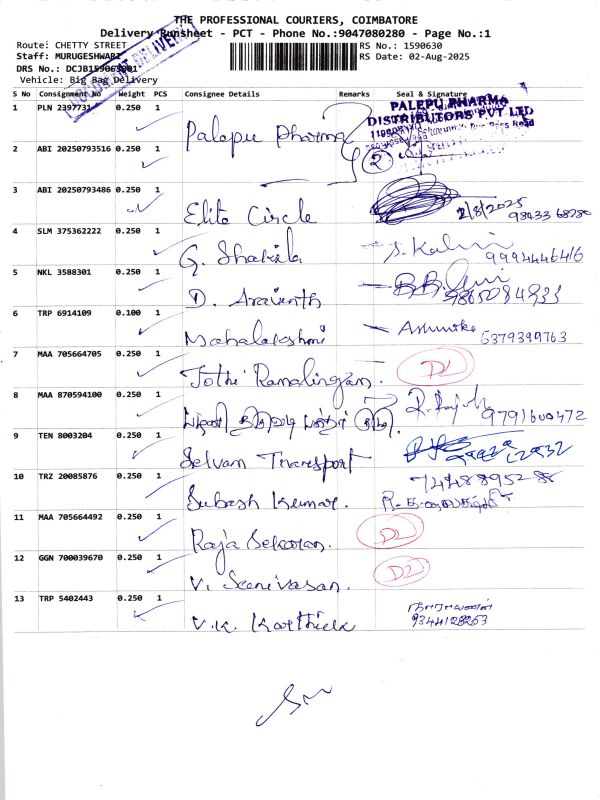 THE PROFESSIONAL COURIERS, COIMBATORE
Delivery Runsheet - PCT - Phone No.:9047080280 - Page No.:1
Route: CHETTY STREET
RS No.: 1590630
Staff: MURUGESHWARI
RS Date: 02-Aug-2025
DRS No.: DCJB1590630
Vehicle: Big Bag Delivery
S No Consignment No Weight PCS Consignee Details Remarks Seal & Signature
1 PLN 2397731 0.250 1 Palepu Pharma
PALEPU PHARMA
DISTRIBUTORS PVT LTD
2 ABI 20250793516 0.250 1
2
3 ABI 20250793486 0.250 1 Elite Circle 2/8/2025
98433 68280
4 SLM 375362222 0.250 1 G. Shakila S. Kalini 9994446416
5 NKL 3588301 0.250 1 D. Aravinth 9865084933
6 TRP 6914109 0.100 1 Mahalakshmi 6379399763
7 MAA 705664705 0.250 1 Jothi Ramalingam. DL
8 MAA 870594100 0.250 1 R. Rajesh 9791600472
9 TEN 8003204 0.250 1 Selvam Transport
10 TRZ 20085876 0.250 1 Subash Kumar.
11 MAA 705664492 0.250 1 Raja Sekaran. DL
12 GGN 700039670 0.250 1 V. Seenivasan. DL
13 TRP 5402443 0.250 1 V.K. Karthick 9344128263